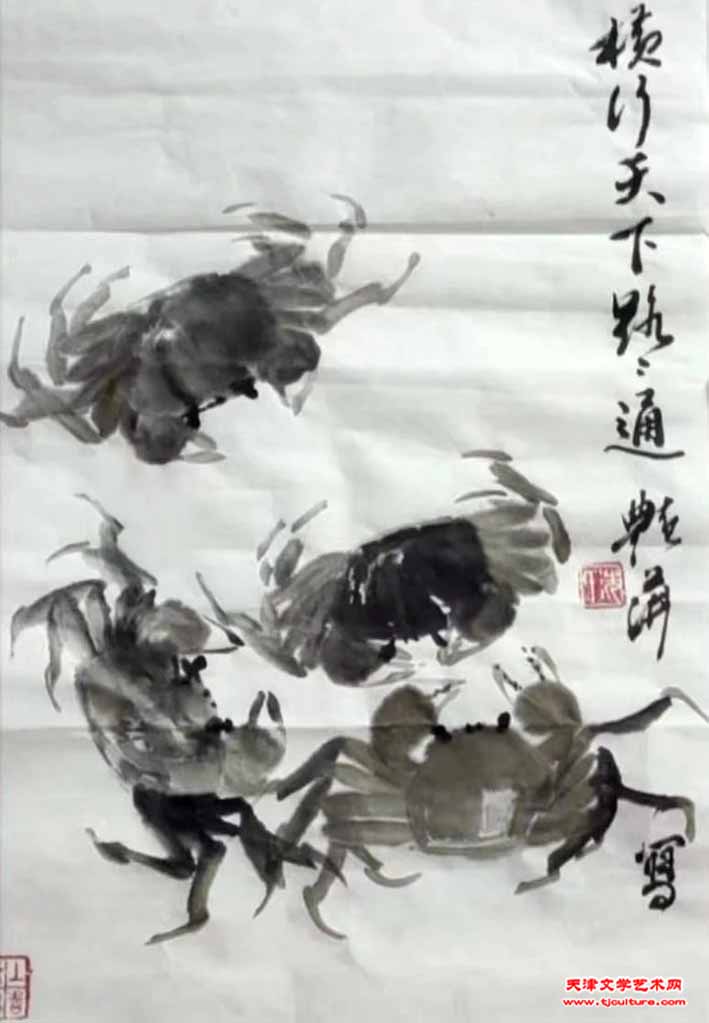 横行天下路〻通
寫
天津文学艺术网
www.tjculture.com